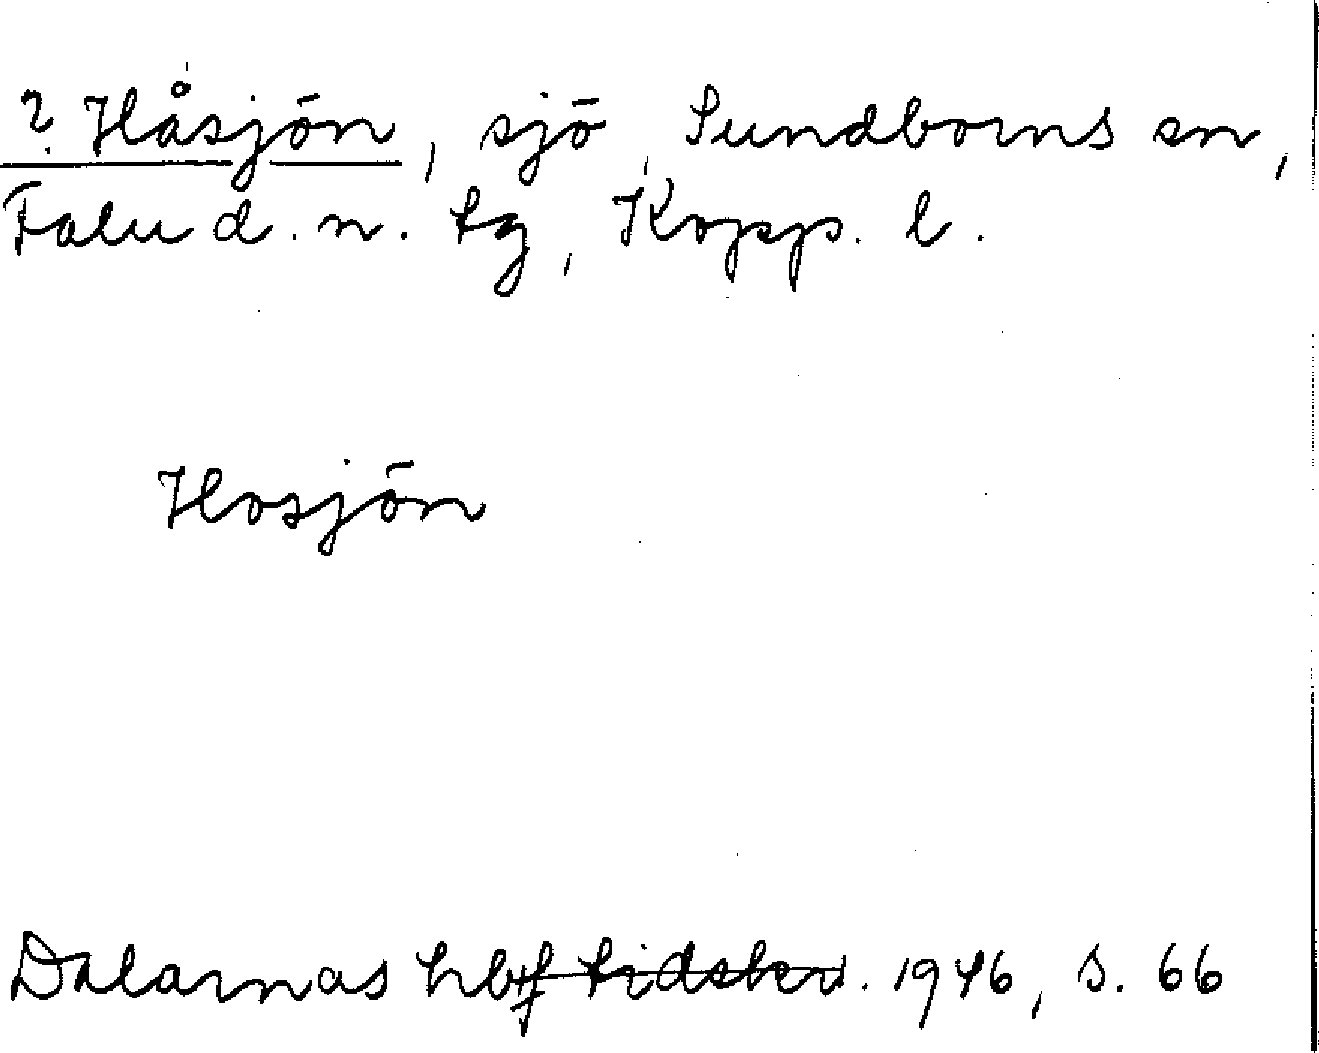 ? Håsjön, sjö, Sundborns sn,
Falu d. n. tg, Kopp. l.
Hosjön
Dalarnas hbf tidskr. 1946, s. 66